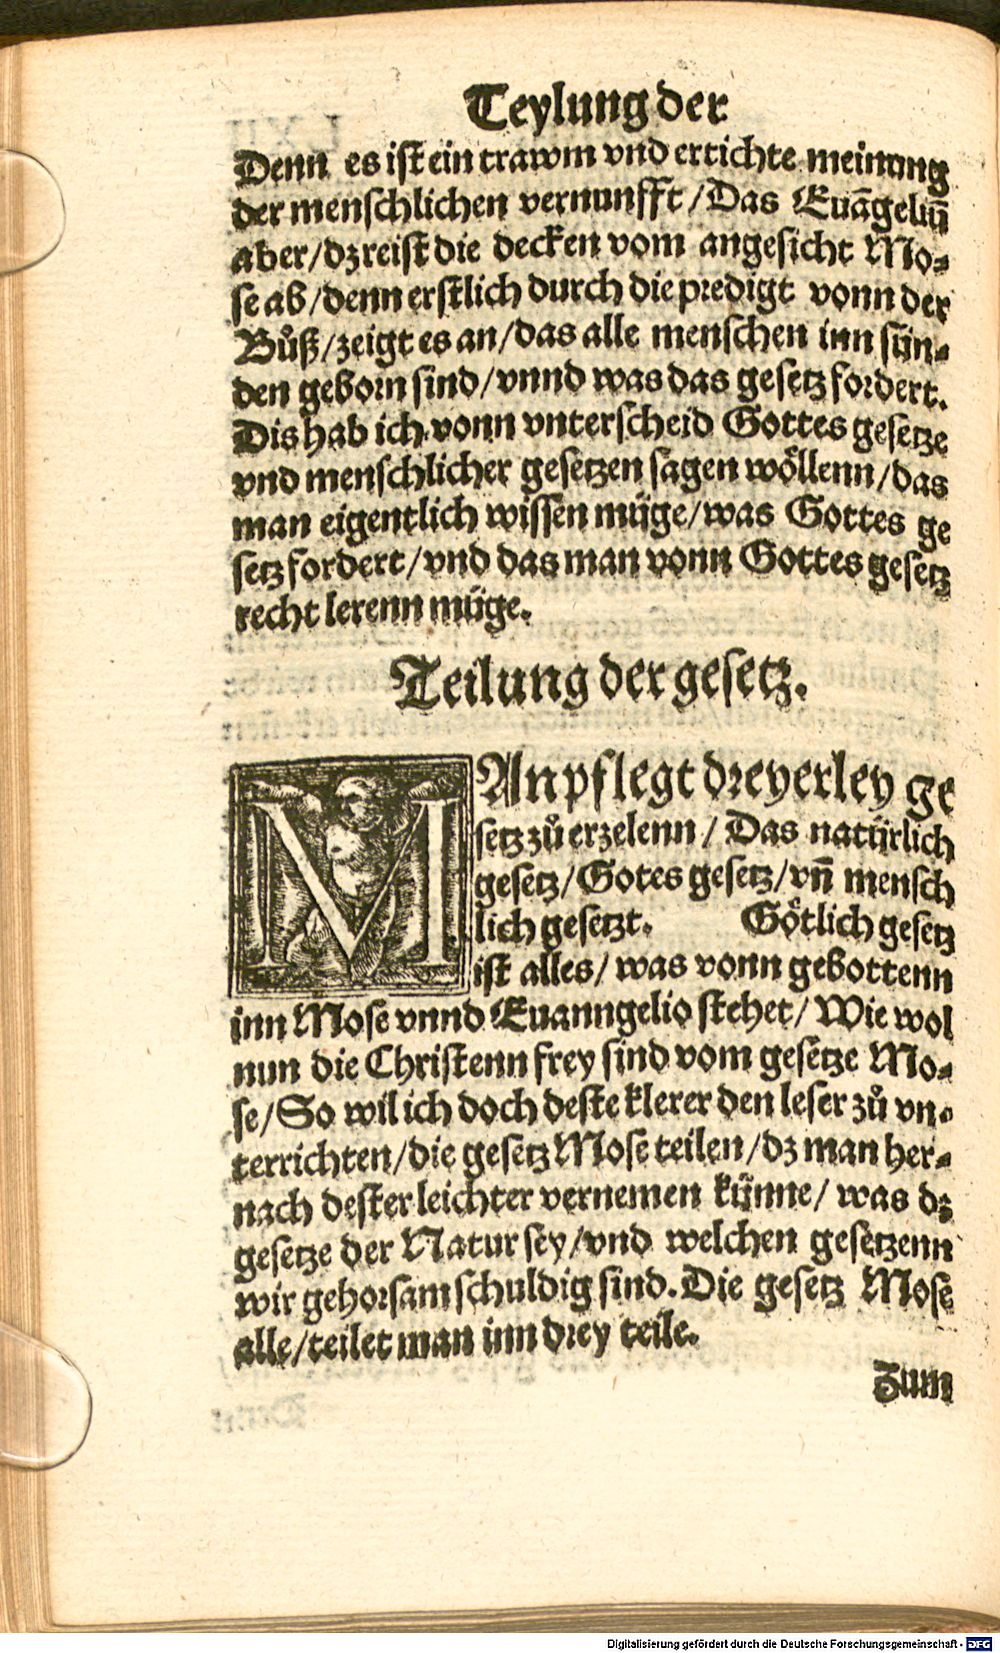 Teylung der
Denn es ist ein trawm vnd ertichte meinung
der menschlichen vernunfft / Das Euãgeliũ
aber / dz reist die decken vom angesicht Mo⸗
se ab / denn erstlich durch die predigt vonn der
Bůß / zeigt es an / das alle menschen inn sün⸗
den geborn sind / vnnd was das gesetz fordert.
Dis hab ich vonn vnterscheid Gottes gesetze
vnd menschlicher gesetzen sagen wöllenn / das
man eigentlich wissen müge / was Gottes ge
setz fordert / vnd das man vonn Gottes gesetz
recht lerenn müge.
Teilung der gesetz.
MAn pflegt dreyerley ge
setz zů erzelenn / Das natürlich
gesetz / Gotes gesetz / vñ mensch
lich gesetzt. Götlich gesetz
ist alles / was vonn gebottenn
inn Mose vnnd Euanngelio stehet / Wie wol
nun die Christenn frey sind vom gesetze Mo⸗
se / So wil ich doch deste klerer den leser zů vn⸗
terrichten / die gesetz Mose teilen / dz man her⸗
nach dester leichter vernemen künne / was dz
gesetze der Natur sey / vnd welchen gesetzenn
wir gehorsam schuldig sind. Die gesetz Mose
alle / teilet man inn drey teile.
Zum
Digitalisierung gefördert durch die Deutsche Forschungsgemeinschaft - DFG